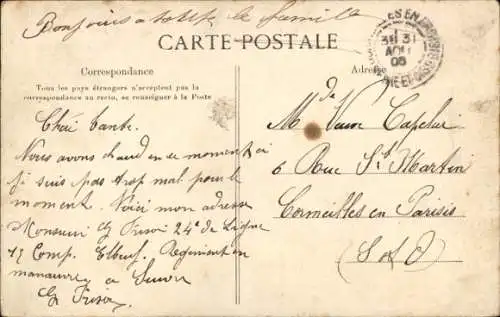 Bonjours a toute la famille
CARTE POSTALE
Correspondance
Tous les pays étrangers n'acceptent pas la
correspondance au recto, se renseigner à la Poste
Adresse
31
AOU
Cher tante.
Nous avons chaud en ce moment ci
je suis pas trop mal pour le
moment. Voici mon adresse
Monsieur G 24e de Ligne
11 Comp. Elbeuf. Régiment en
manœuvre, a Suivre
G
Me Veuve
6 Rue St Martin
Cormeilles en Parisis
(S & O)